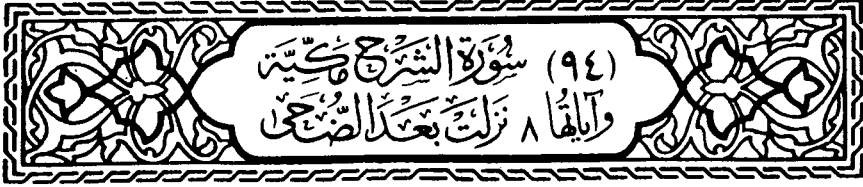 (٩٤) سُورَة الشَرْح مَكِيَّة
وَآيَاتُهَا ٨ نَزَلَتْ بَعْدَ الضُّحَىٰ